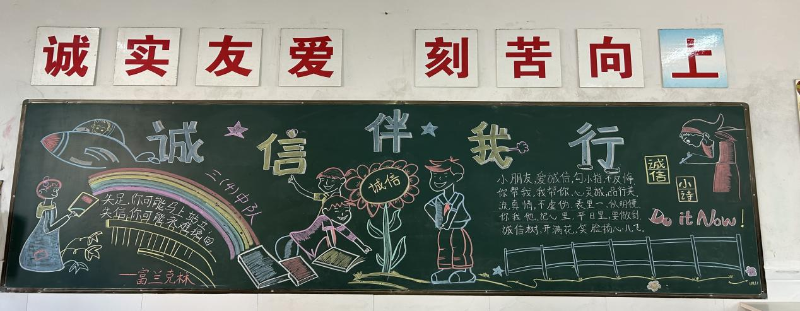 诚实友爱 刻苦向上
诚信伴我行
三(4)中队
失足,你可能马上站立
失信,你可能永难挽回
——富兰克林
诚信
诚信
小诗
小朋友,爱诚信,勾小指,不反悔
你帮我,我帮你,心灵诚,品行美
流真情,不虚伪,表里一,
你我他,记心里,平日里,要做到
诚信树,开满花,笑脸
Do it Now!